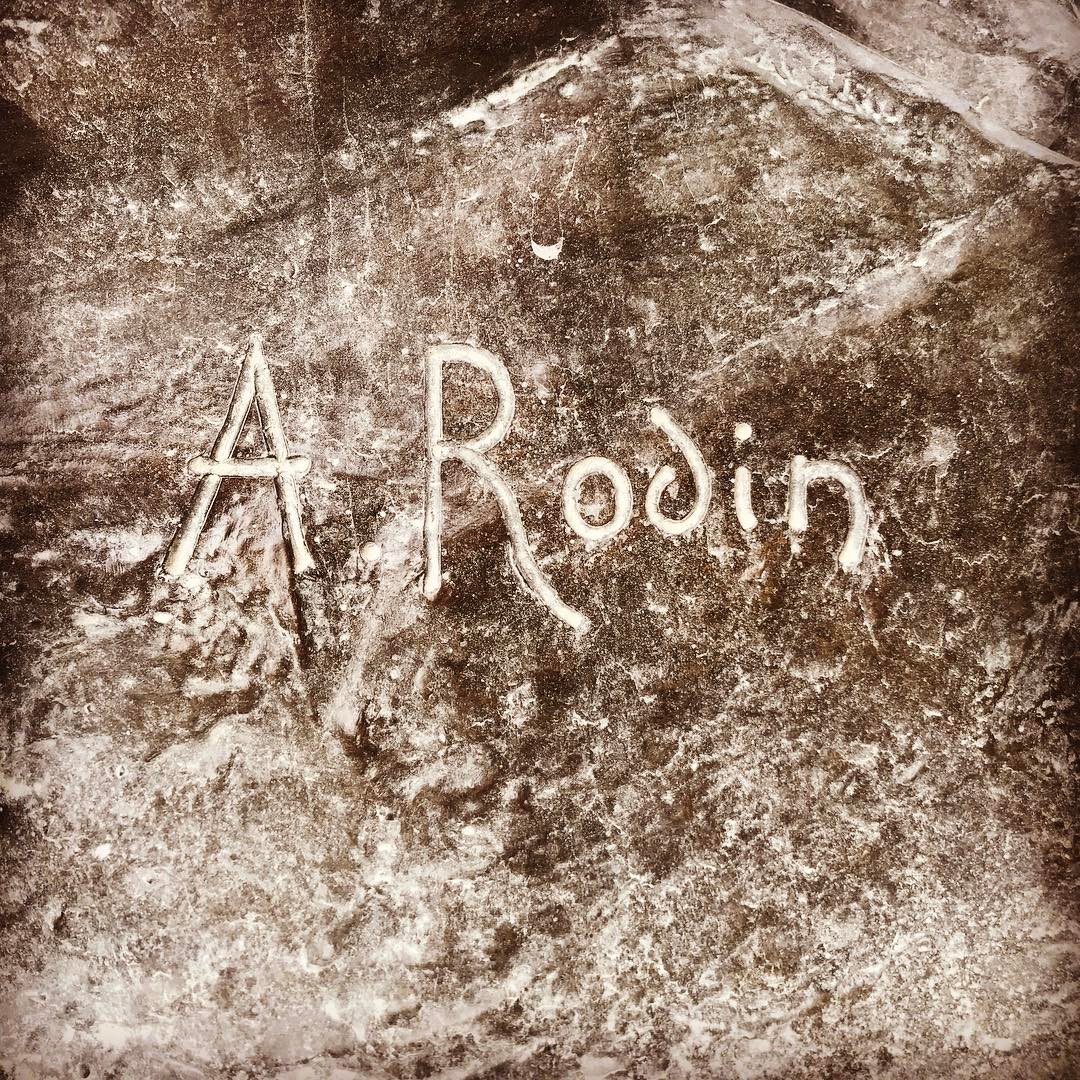 A. Rodin